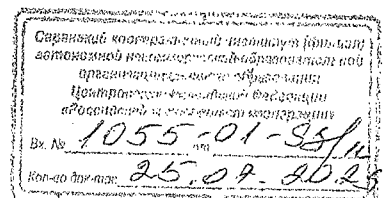 Саранский кооперативный институт (филиал)
автономной некоммерческой образовательной
организации высшего образования
Центросоюза Российской Федерации
«Российский университет кооперации»
Вх. № 1055-01-
Кол-во док-тов 25.07.2023